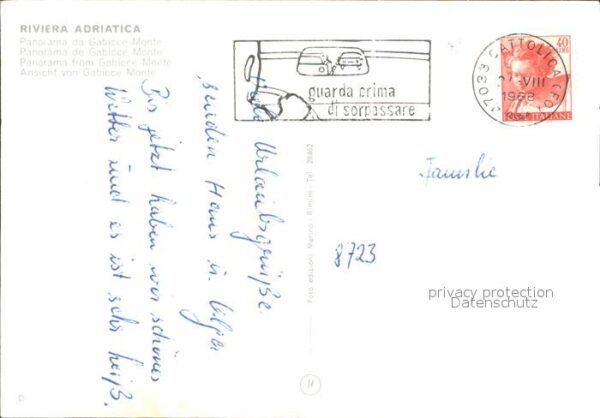 RIVIERA ADRIATICA
Panorama da Gabicce Monte
Panorama de Gabicce Monte
Panorama from Gabicce Monte
Ansicht von Gabicce Monte
guarda prima
di sorpassare
47033 CATTOLICA (FO)
VIII
1968
40
LIRE
ITALIANE
Urlaubsgrüße
senden Hans u.
Bis jetzt haben wir schönes
Wetter und es ist sehr heiß.
Foto edizioni Marino - Rimini - Tel. 26462
Familie
8723
privacy protection
Datenschutz
D